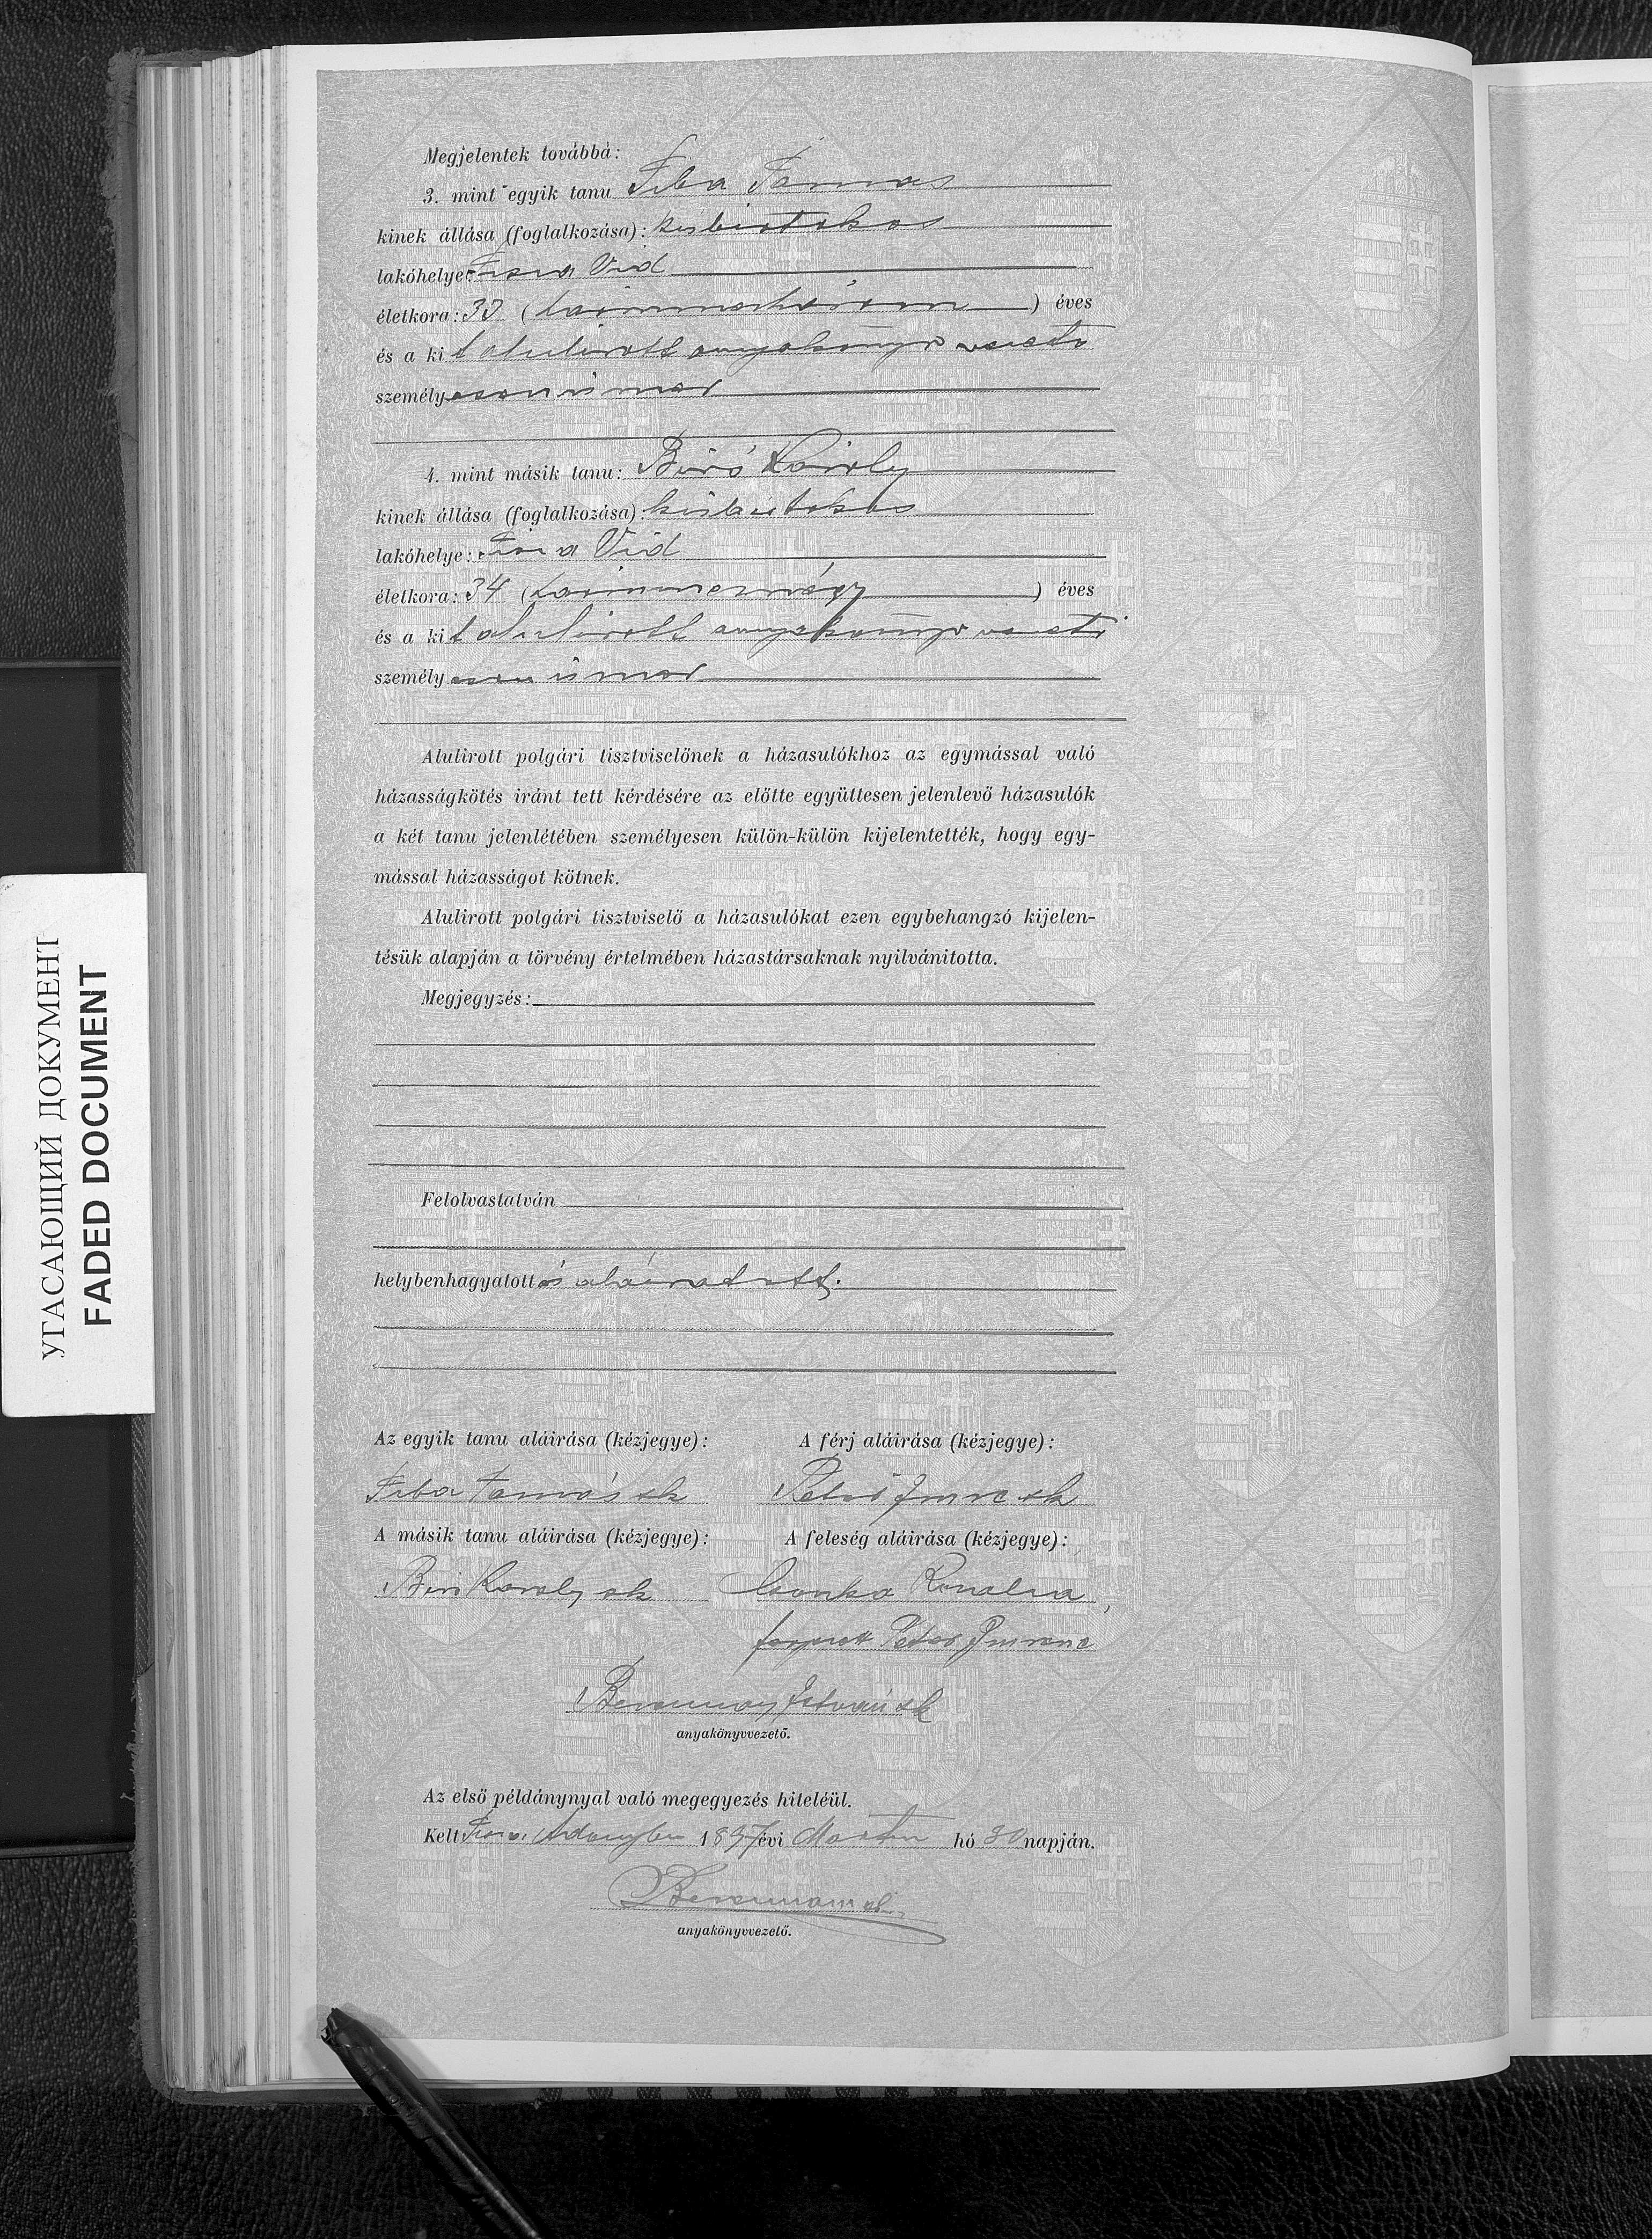 Megjelentek továbbá:
3. mint egyik tanu Fiba Tamas
kinek állása (foglalkozása): kisbirtokos
lakóhelye: Tisza Vid
életkora: 33 (harminczhárom) éves
és a kit alulirott anyakönyvvezető
személyesen ismer
4. mint másik tanu: Biró Károly
kinek állása (foglalkozása): kisbirtokos
lakóhelye: Tisza Vid
életkora: 34 (harmincznégy) éves
és a kit alulirott anyakönyvvezető
személyesen ismer
Alulirott polgári tisztviselőnek a házasulókhoz az egymással való
házasságkötés iránt tett kérdésére az előtte együttesen jelenlevő házasulók
a két tanu jelenlétében személyesen külön-külön kijelentették, hogy egy-
mással házasságot kötnek.
Alulirott polgári tisztviselő a házasulókat ezen egybehangzó kijelen-
tésük alapján a törvény értelmében házastársaknak nyilvánitotta.
Megjegyzés:
Felolvastatván
helybenhagyatott és aláiratott.
Az egyik tanu aláirása (kézjegye): A férj aláirása (kézjegye):
Fiba Tamás sk Pető Imre sk
A másik tanu aláirása (kézjegye): A feleség aláirása (kézjegye):
Biró Karoly sk Csonka Rozalia
Pető Imrene
István sk
anyakönyvvezető.
Az első példánynyal való megegyezés hiteléül.
Kelt Tisza Adonyban 1897 évi Martzius hó 30 napján.
anyakönyvvezető.
УГАСАЮЩИЙ ДОКУМЕНТ
FADED DOCUMENT